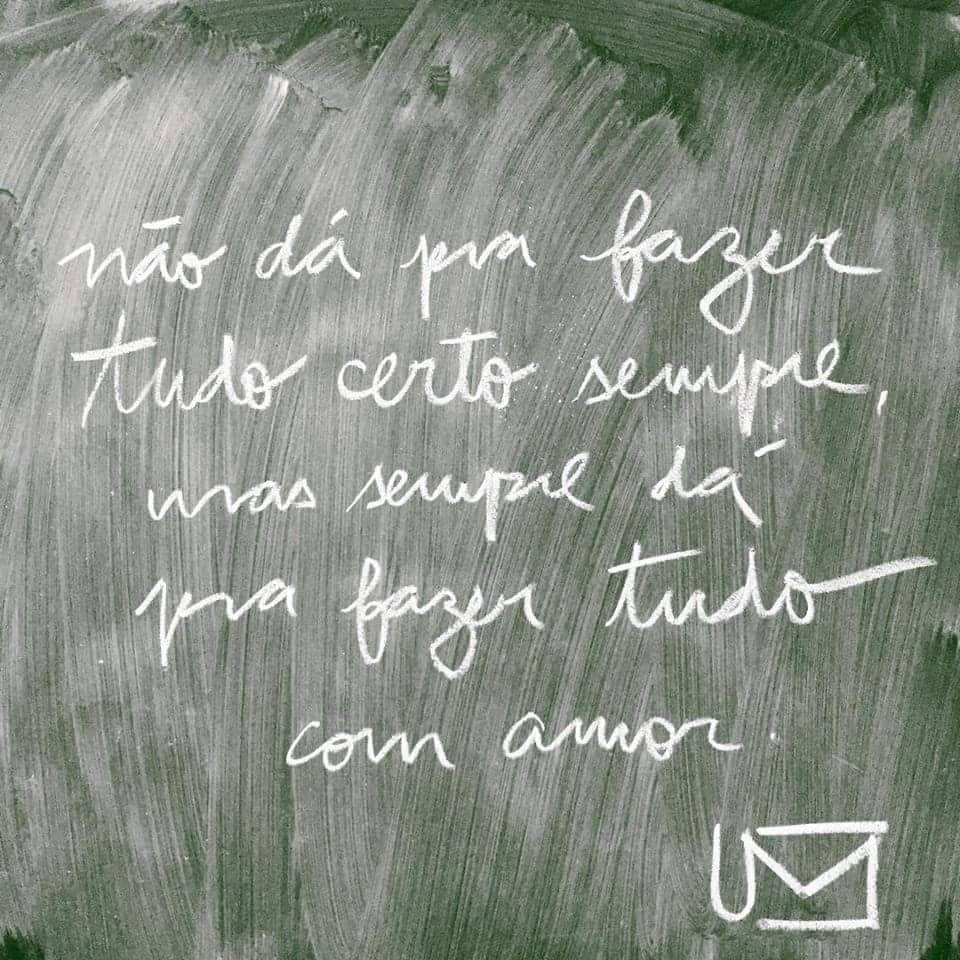 não dá pra fazer
tudo certo sempre,
mas sempre dá
pra fazer tudo
com amor.